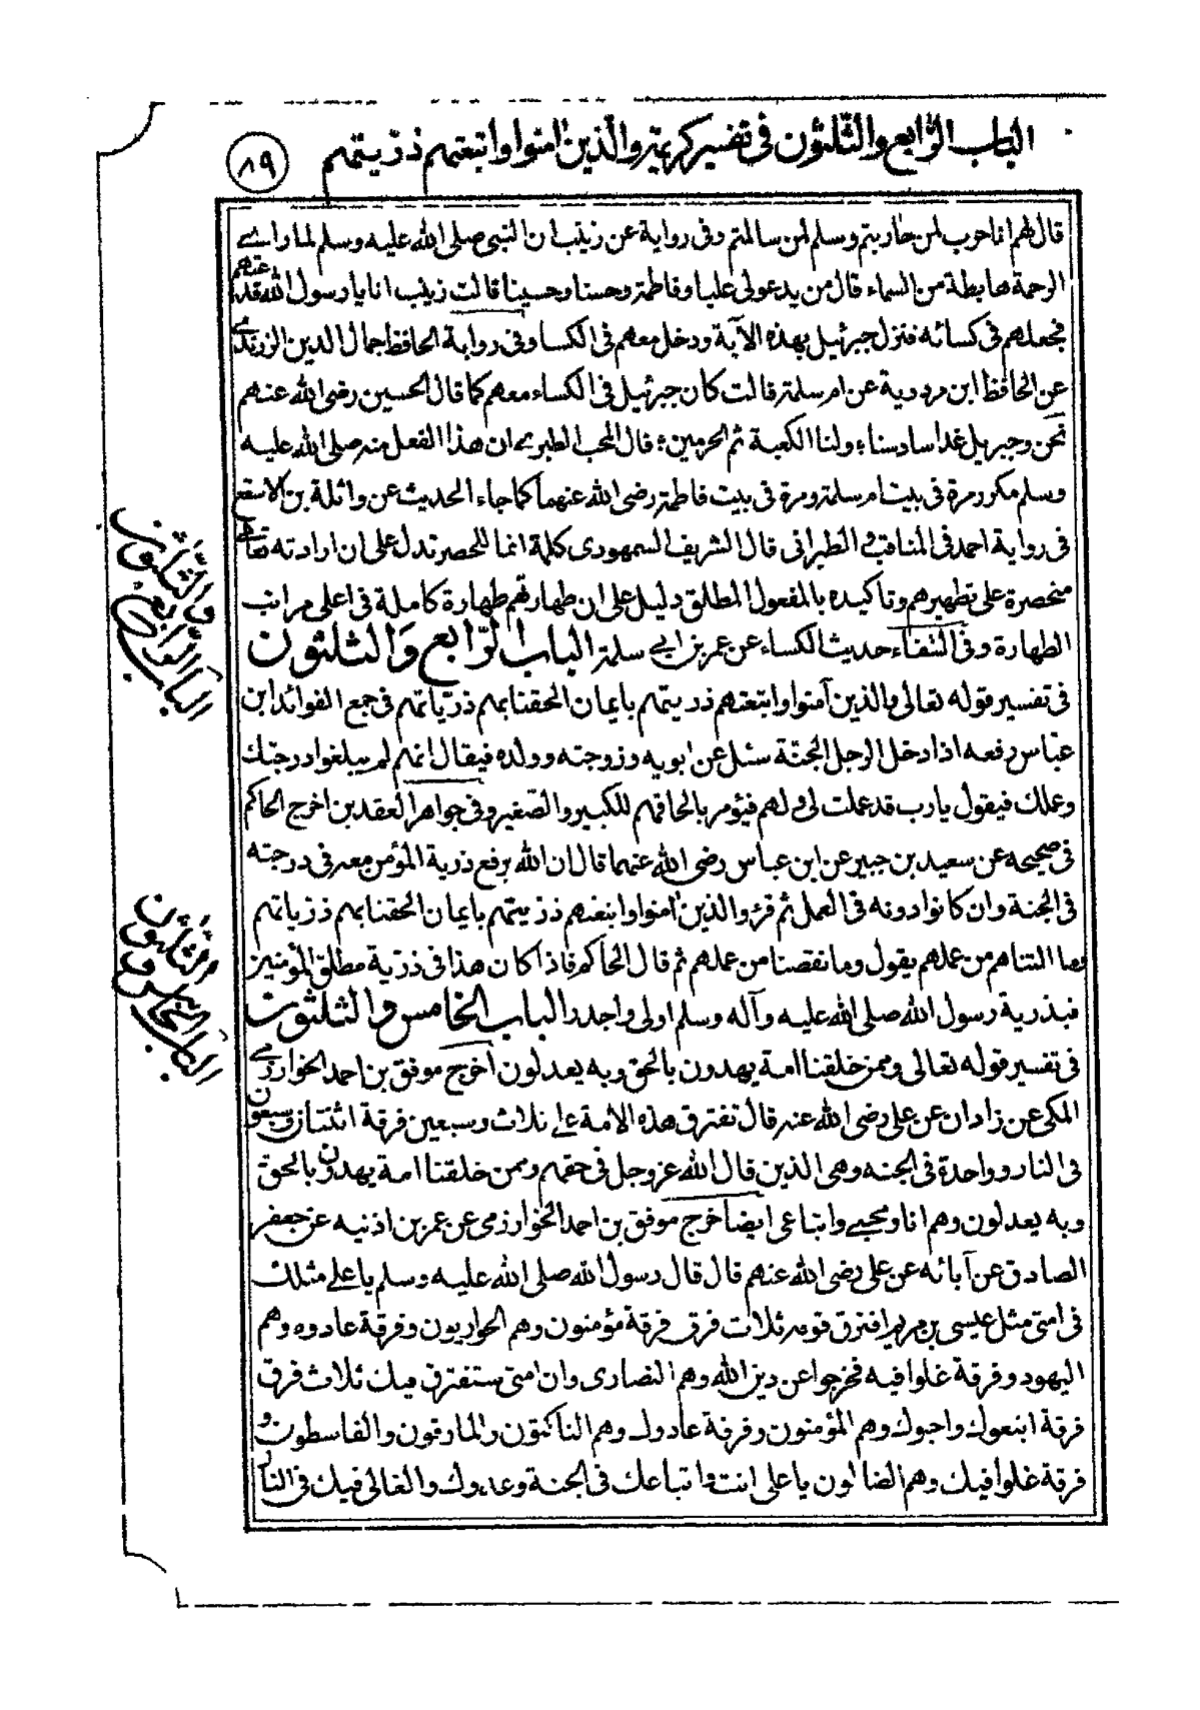 الباب الرابع والثلثون فى تفسير كريمة والذين امنوا واتبعتهم ذريتهم
٨٩
قال لهم انا حرب لمن حاربتم وسلم لمن سالمتم وفى رواية عن زينب ان النبى صلى الله عليه وسلم لما راى
الرحمة هابطة من السماء قال من يدعو لى عليا وفاطمة وحسنا وحسينا قالت زينب انا يا رسول الله فدعتهم
فجعلهم فى كسائه فنزل جبرئيل بهذه الآية ودخل معهم فى الكساء وفى رواية الحافظ جمال الدين الزرندى
عن الحافظ ابن مردوية عن ام سلمة قالت كان جبرئيل فى الكساء معهم كما قال الحسين رضى الله عنهم
نحن وجبريل غدا سادسنا ولنا الكعبة ثم الحرمين قال المحب الطبرى ان هذا الفعل منه صلى الله عليه
وسلم مكرر مرة فى بيت ام سلمة ومرة فى بيت فاطمة رضى الله عنهما كما جاء الحديث عن واثلة بن الاسقع
فى رواية احمد فى المناقب والطبرانى قال الشريف السمهودى كلمة انما للحصر تدل على ان ارادته تعالى
منحصرة على تطهيرهم وتاكيده بالمفعول المطلق دليل على ان طهارتهم طهارة كاملة فى اعلى مراتب
الطهارة وفى الشفاء حديث الكساء عن عمر بن ابى سلمة الباب الرابع والثلثون
فى تفسير قوله تعالى والذين آمنوا واتبعتهم ذريتهم بايمان الحقنا بهم ذرياتهم فى جمع الفوائد ابن
عباس رفعه اذا دخل الرجل الجنة سئل عن ابويه وزوجته وولده فيقال انهم لم يبلغوا درجتك
وعملك فيقول يارب قد عملت لى ولهم فيؤمر بالحاقهم للكبير والصغير وفى جواهر العقدين اخرج الحاكم
فى صحيحه عن سعيد بن جبير عن ابن عباس رضى الله عنهما قال ان الله يرفع ذرية المؤمن معه فى درجته
فى الجنة وان كانوا دونه فى العمل ثم قرء والذين امنوا واتبعتهم ذريتهم بايمان الحقنا بهم ذرياتهم
وما التناهم من عملهم يقول وما نقصنا من عملهم ثم قال الحاكم فاذا كان هذا فى ذرية مطلق المؤمنين
فبذرية رسول الله صلى الله عليه وآله وسلم اولى واجدر الباب الخامس والثلثون
فى تفسير قوله تعالى وممن خلقنا امة يهدون بالحق وبه يعدلون اخرج موفق بن احمد الخوارزمى
المكى عن زاذان عن على رضى الله عنه قال تفترق هذه الامة على ثلاث وسبعين فرقة اثنتان وسبعون
فى النار وواحدة فى الجنه وهى الذين قال الله عز وجل فى حقهم وممن خلقنا امة يهدون بالحق
وبه يعدلون وهم انا ومحبى واتباعى ايضا خرج موفق بن احمد الخوارزمى عن عمر بن اذنيه عن جعفر
الصادق عن آبائه عن على رضى الله عنهم قال قال رسول الله صلى الله عليه وسلم يا على مثلك
فى امتى مثل عيسى بن مريم افترق قومه ثلاث فرق فرقة مؤمنون وهم الحواريون وفرقة عادوه وهم
اليهود وفرقة غلوا فيه فخرجوا عن دين الله وهم النصارى وان امتى ستفترق فيك ثلاث فرق
فرقة اتبعوك واحبوك وهم المؤمنون وفرقة عادوك وهم الناكثون والمارقون والقاسطون و
فرقة غلوا فيك وهم الضالون يا على انت واتباعك فى الجنة وعدوك والغالى فيك فى النار
الباب الرابع
والثلثون
الباب الخامس
والثلثون